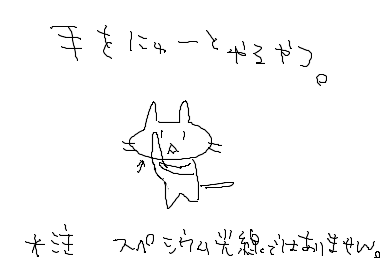 手をにゅーとやるやつ。
大注 スペシウム光線ではありません。